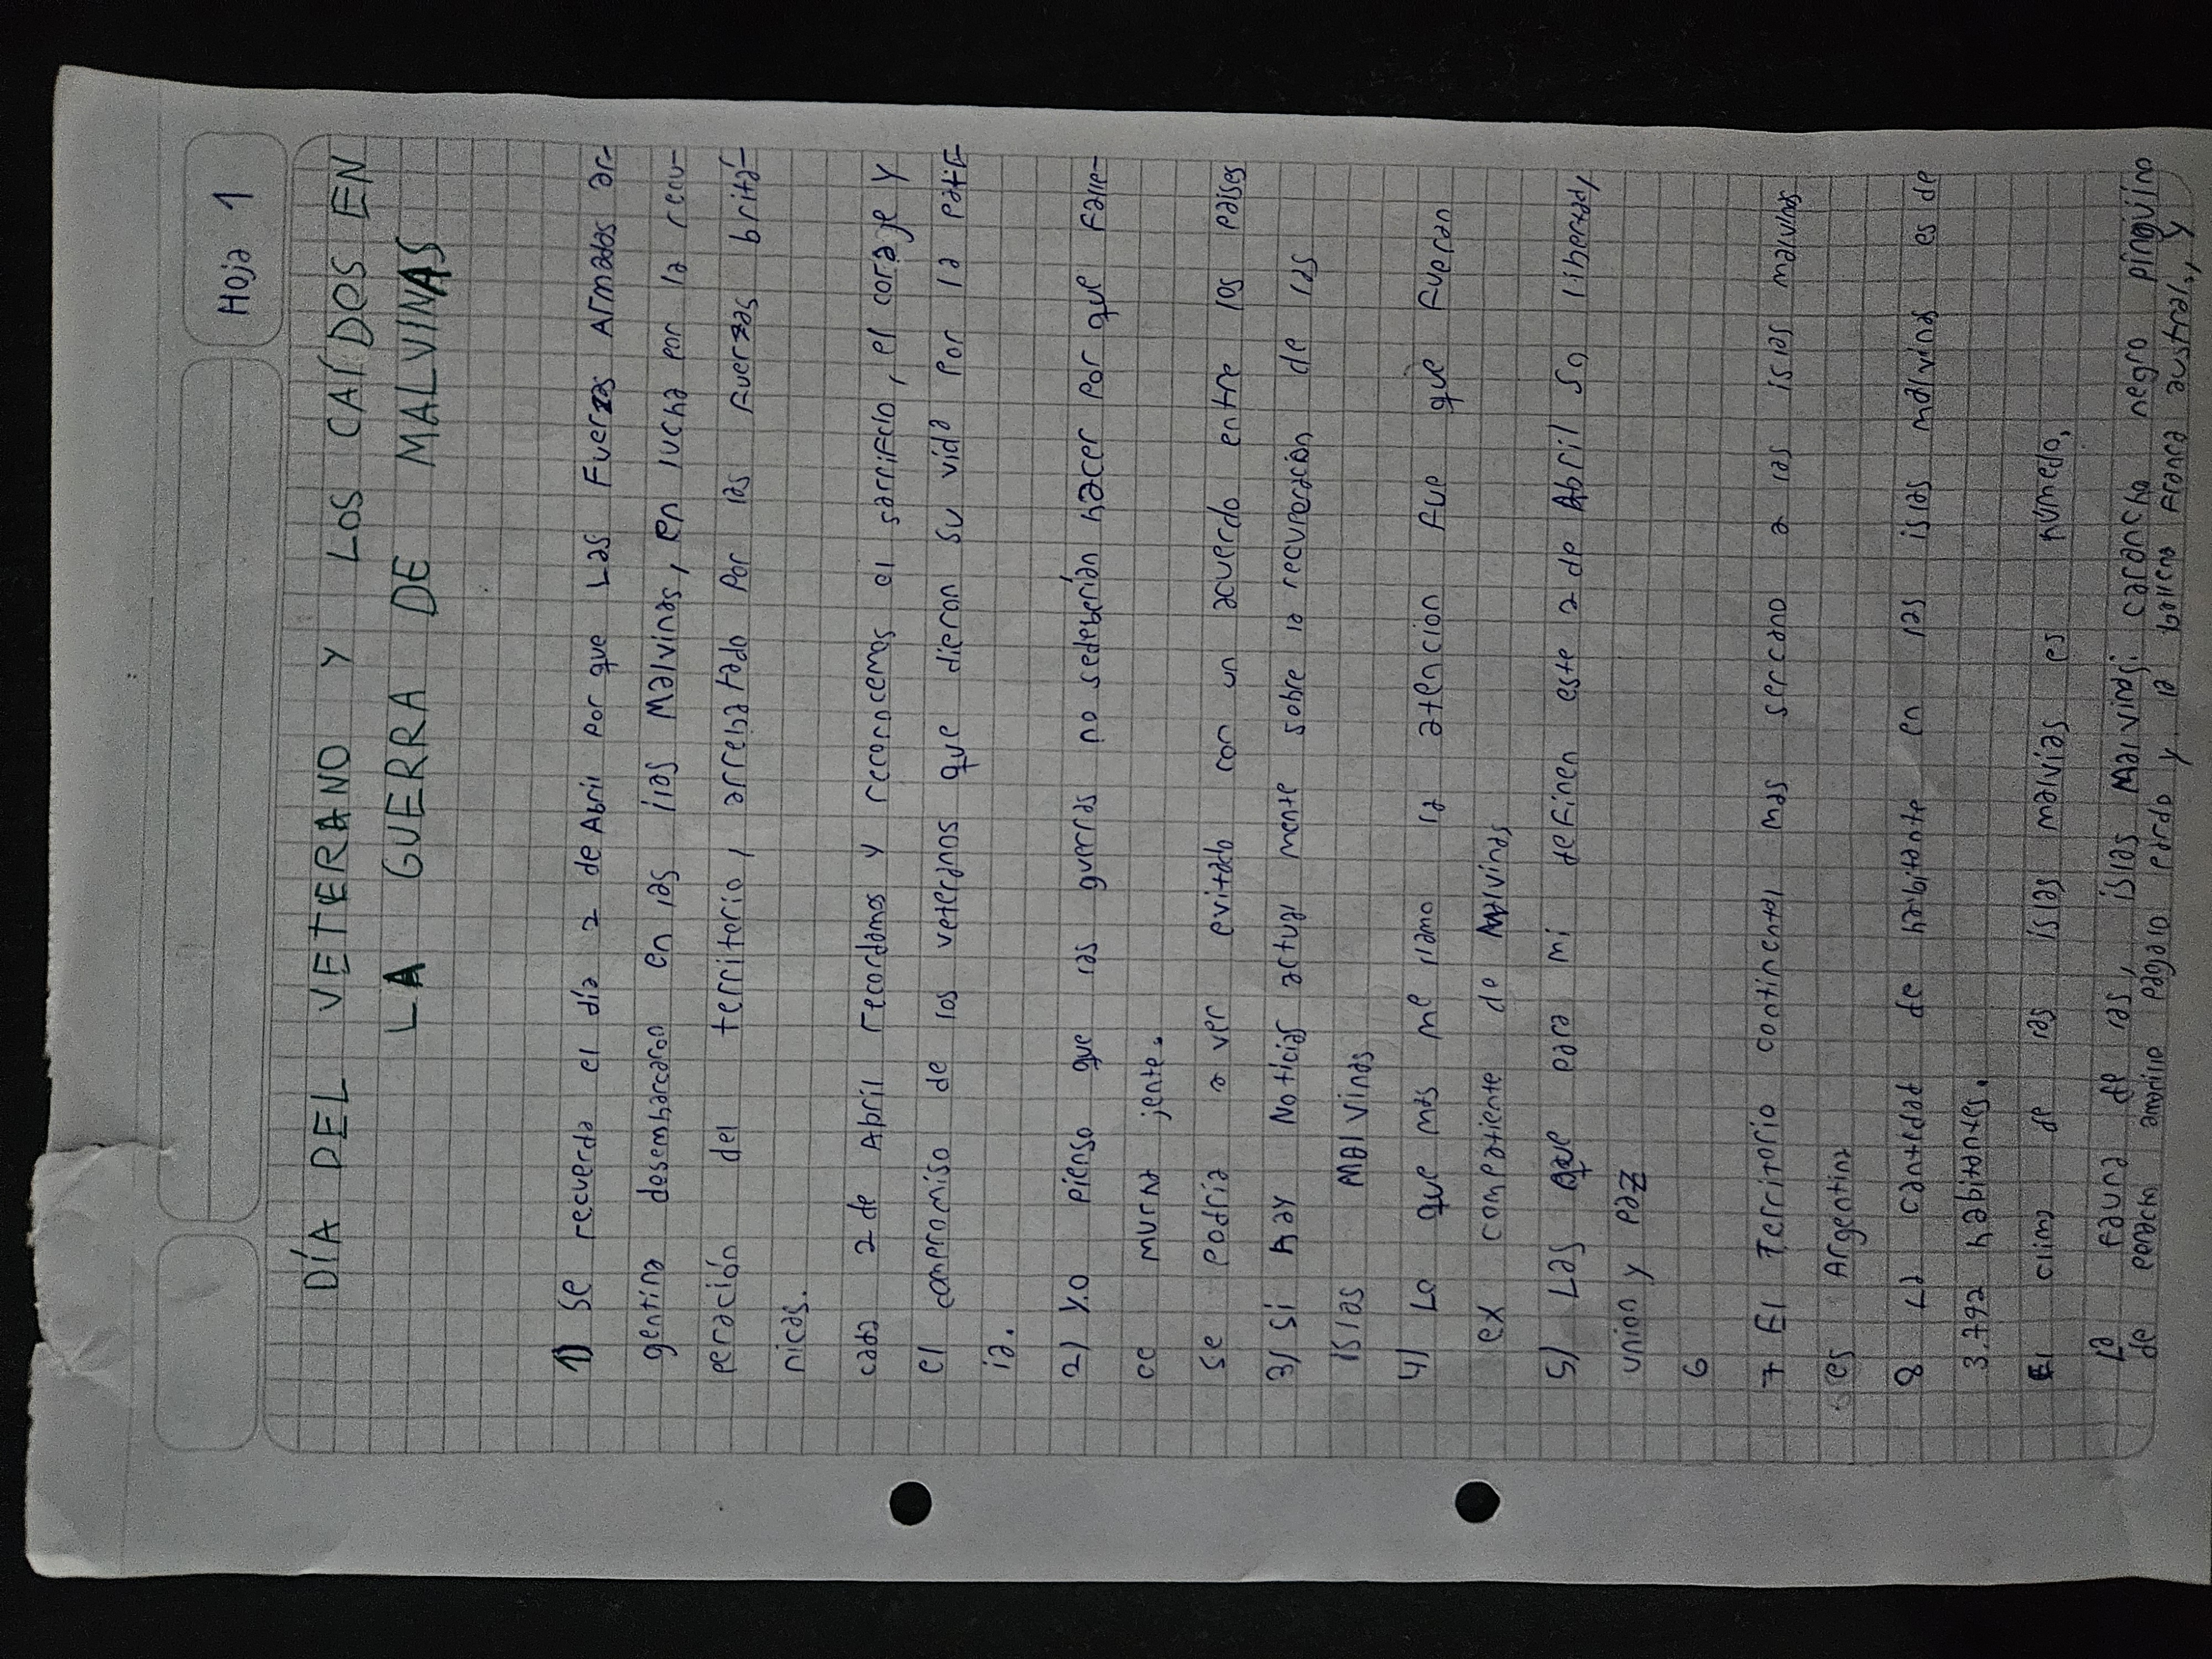 Hoja 1
DÍA DEL VETERANO Y LOS CAÍDOS EN
LA GUERRA DE MALVINAS
1) Se recuerda el día 2 de Abril por que Las Fuerzas Armadas ar-
gentina desembarcaron en las ilas Malvinas, en lucha por la recu-
peración del territerio, arrebatado por las fuerzas britá-
nicas.
cada 2 de Abril recordamos y reconocemos el sacrifcio, el coraje y
el compromiso de los veteranos que dieron su vida por la patr
ia.
2) Yo pienso que las guerras no sedeberían hacer por que falle-
ce mucha jente.
se podría a ver evitado con un acuerdo entre los países
3) Si hay Noticias actual mente sobre la recuperación de las
islas MalVinas
4) Lo que mas me llamo la atencion fue que fueran
ex compatiente de Malvinas
5) Las que para mi definen este 2 de Abril So libertad,
union y paz
6
7 El Territorio continental mas sercano a las islas malvinas
es Argentina
8 La cantedad de habitante en las islas malvinas es de
3.792 habitantes.
El clima de las islas malvias es húmedo,
La fauna de las, islas Malvinas: carancho negro pingüino
de penacho amarillo pájaro pardo y la ballena franca austral, y